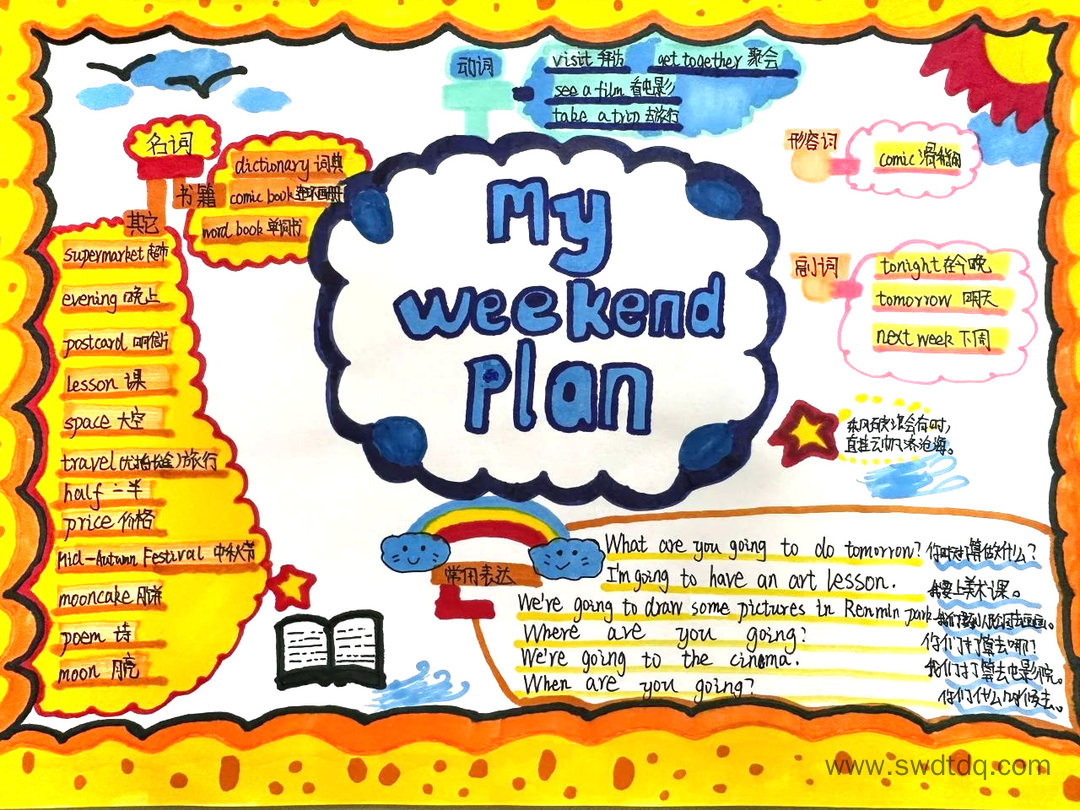 动词
visit 拜访 get together 聚会
see a film 看电影
take a trip 去旅行
名词
书籍
dictionary 词典
comic book 连环画册
word book 单词书
其它
supermarket 超市
evening 晚上
postcard 明信片
lesson 课
space 太空
travel (尤指长途) 旅行
half 一半
price 价格
Mid-Autumn Festival 中秋节
mooncake 月饼
poem 诗
moon 月亮
My
weekend
plan
形容词
comic 滑稽的
副词
tonight 在今晚
tomorrow 明天
next week 下周
长风破浪会有时,
直挂云帆济沧海。
常用表达
What are you going to do tomorrow? 你明天打算做什么?
I'm going to have an art lesson. 我要上美术课。
We're going to draw some pictures in Renmin park
Where are you going? 你们打算去哪?
We're going to the cinema. 我们打算去电影院。
When are you going? 你们什么时候去。
www.swdtdq.com